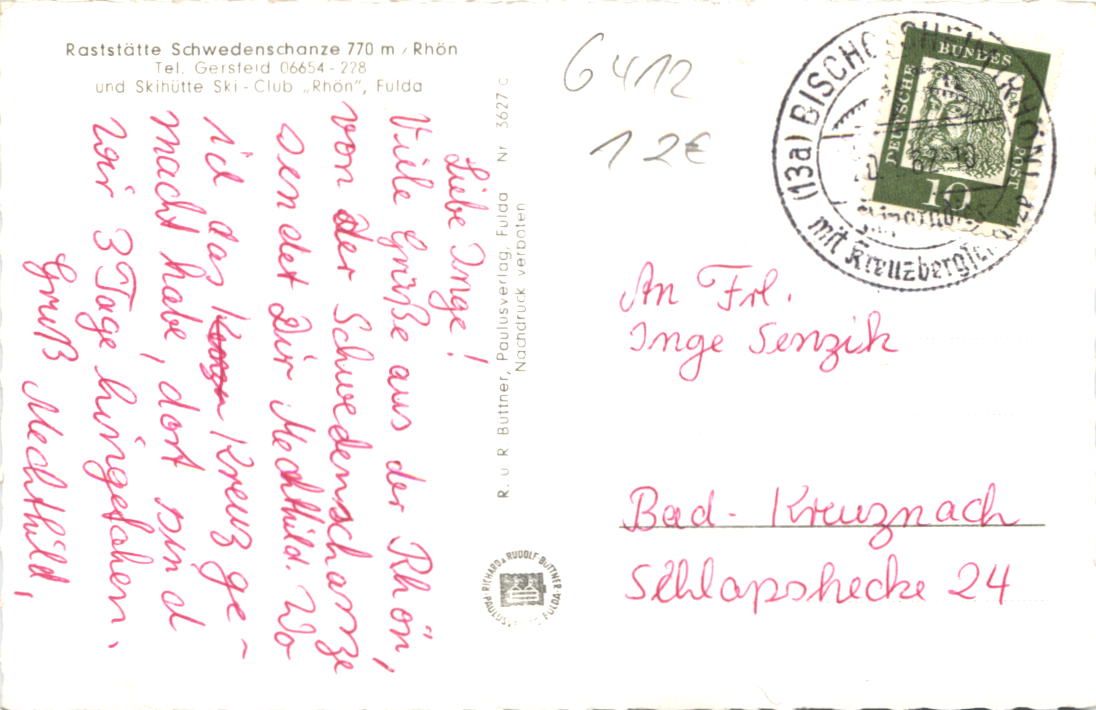 Raststätte Schwedenschanze 770 m / Rhön
Tel. Gersfeld 06654 - 228
und Skihütte Ski - Club „Rhön", Fulda
Liebe Inge!
Viele Grüße aus der Rhön,
von der Schwedenschanze
sendet Dir Mechthild. Wo
ich das Kreuz ge-
macht habe, dort sind
wir 3 Tage hingefahren.
Gruß Mechthild,
R. u R Büttner, Paulusverlag, Fulda Nr 3627 c
Nachdruck verboten
RICHARD & RUDOLF BÜTTNER
FULDA
6412
12€
(13a) BISCHOFSHEIM (RHÖN)
mit Kreuzberg
DEUTSCHE
BUNDES
POST
10
An Frl.
Inge Senzik
Bad - Kreuznach
Schlapshecke 24